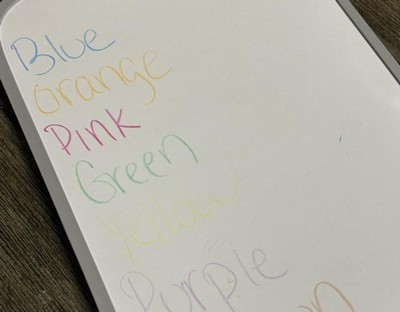 Blue
Orange
Pink
Green
Yellow
Purple